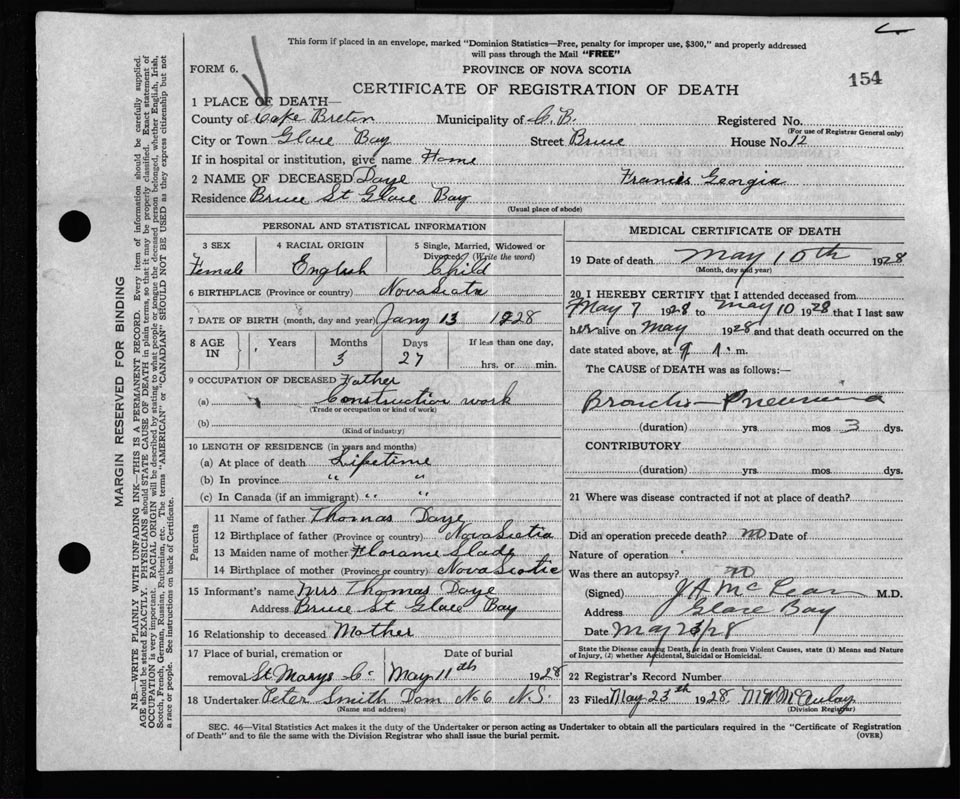 This form if placed in an envelope, marked "Dominion Statistics—Free, penalty for improper use, $300," and properly addressed
will pass through the Mail "FREE"
FORM 6. PROVINCE OF NOVA SCOTIA 154
CERTIFICATE OF REGISTRATION OF DEATH
1 PLACE OF DEATH—
County of Cape Breton Municipality of C.B. Registered No.
(For use of Registrar General only)
City or Town Glace Bay Street Bruce House No. 12
If in hospital or institution, give name Home
2 NAME OF DECEASED Daye Francis Georgia
Residence Bruce St Glace Bay
(Usual place of abode)
PERSONAL AND STATISTICAL INFORMATION
3 SEX 4 RACIAL ORIGIN 5 Single, Married, Widowed or
Divorced (Write the word)
Female English Child
6 BIRTHPLACE (Province or country) Nova Scotia
7 DATE OF BIRTH (month, day and year) Jany 13 1928
8 AGE IN Years Months Days If less than one day,
3 27 hrs. or min.
9 OCCUPATION OF DECEASED Father
(a) Construction work
(Trade or occupation or kind of work)
(b)
(Kind of industry)
10 LENGTH OF RESIDENCE (in years and months)
(a) At place of death Lifetime
(b) In province " "
(c) In Canada (if an immigrant) " "
Parents
11 Name of father Thomas Daye
12 Birthplace of father (Province or country) Nova Scotia
13 Maiden name of mother Slade
14 Birthplace of mother (Province or country) Nova Scotia
15 Informant's name Mrs Thomas Daye
Address Bruce St Glace Bay
16 Relationship to deceased Mother
17 Place of burial, cremation or Date of burial
removal St Marys C. May 11th 1928
18 Undertaker Peter Smith Dom No 6 N.S.
(Name and address)
MEDICAL CERTIFICATE OF DEATH
19 Date of death May 10th 1928
(Month, day and year)
20 I HEREBY CERTIFY that I attended deceased from
May 7 1928 to May 10 1928 that I last saw
her alive on May 1928 and that death occurred on the
date stated above, at 9 m.
The CAUSE of DEATH was as follows:—
Broncho-Pneumonia
(duration) yrs. mos. 3 dys.
CONTRIBUTORY
(duration) yrs. mos. dys.
21 Where was disease contracted if not at place of death?
Did an operation precede death? No Date of
Nature of operation
Was there an autopsy? No
(Signed) M.D.
Address Glace Bay
Date May 23/28
State the Disease causing Death, or in death from Violent Causes, state (1) Means and Nature
of Injury, (2) whether Accidental, Suicidal or Homicidal.
22 Registrar's Record Number
23 Filed May 23th 1928 McAulay
(Division Registrar)
SEC. 46—Vital Statistics Act makes it the duty of the Undertaker or person acting as Undertaker to obtain all the particulars required in the "Certificate of Registration
of Death" and to file the same with the Division Registrar who shall issue the burial permit. (OVER)
MARGIN RESERVED FOR BINDING
N.B.—WRITE PLAINLY WITH UNFADING INK—THIS IS A PERMANENT RECORD. Every item of information should be carefully supplied.
AGE should be stated EXACTLY. PHYSICIANS should STATE CAUSE OF DEATH in plain terms, so that it may be properly classified. Exact statement of
OCCUPATION is very important. RACIAL ORIGIN will be described by stating to what people or tongue the deceased person belonged, whether English, Irish,
Scotch, French, German, Russian, Ruthenian, etc. The terms "AMERICAN" or "CANADIAN" SHOULD NOT BE USED as they express citizenship but not
a race or people. See instructions on back of Certificate.